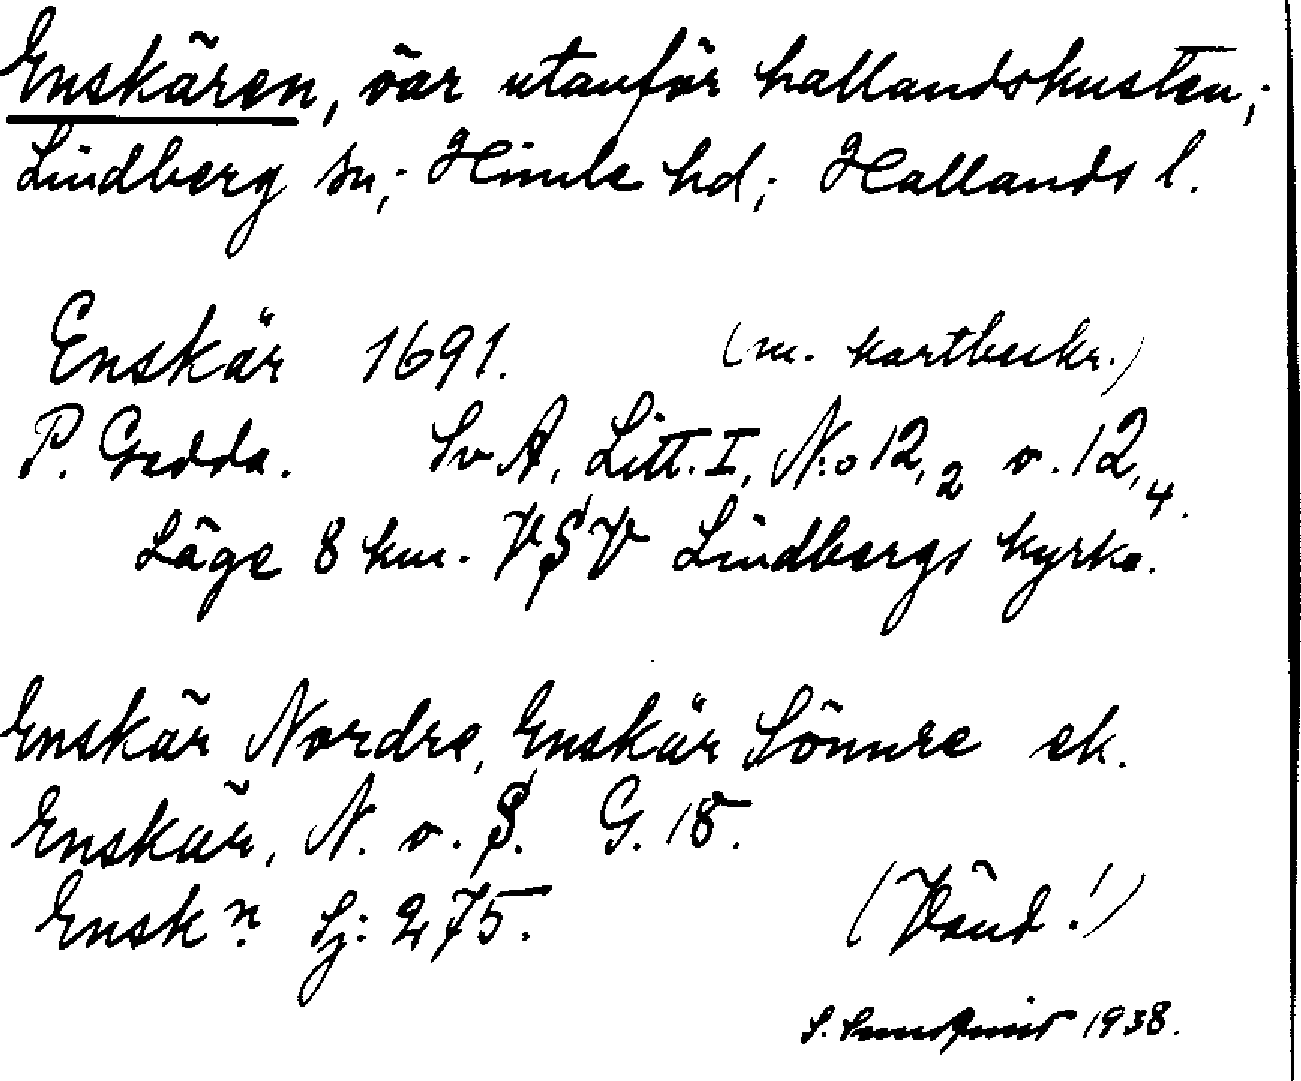 Enskären, öar utanför hallandskusten;
Lindberg sn; Himle hd; Hallands l.
Enskär 1691. (m. kartbeskr.)
P. Gedda. Sv A, Litt. I, N:o 12,2 o. 12,4.
Läge 8 km. VSV Lindbergs kyrka.
Enskär Nordre, Enskär Sönnre ek.
Enskär, N. o. S. G. 18.
Ensk n. Sj: 275.
(Vänd!)
S. Sundqvist 1938.